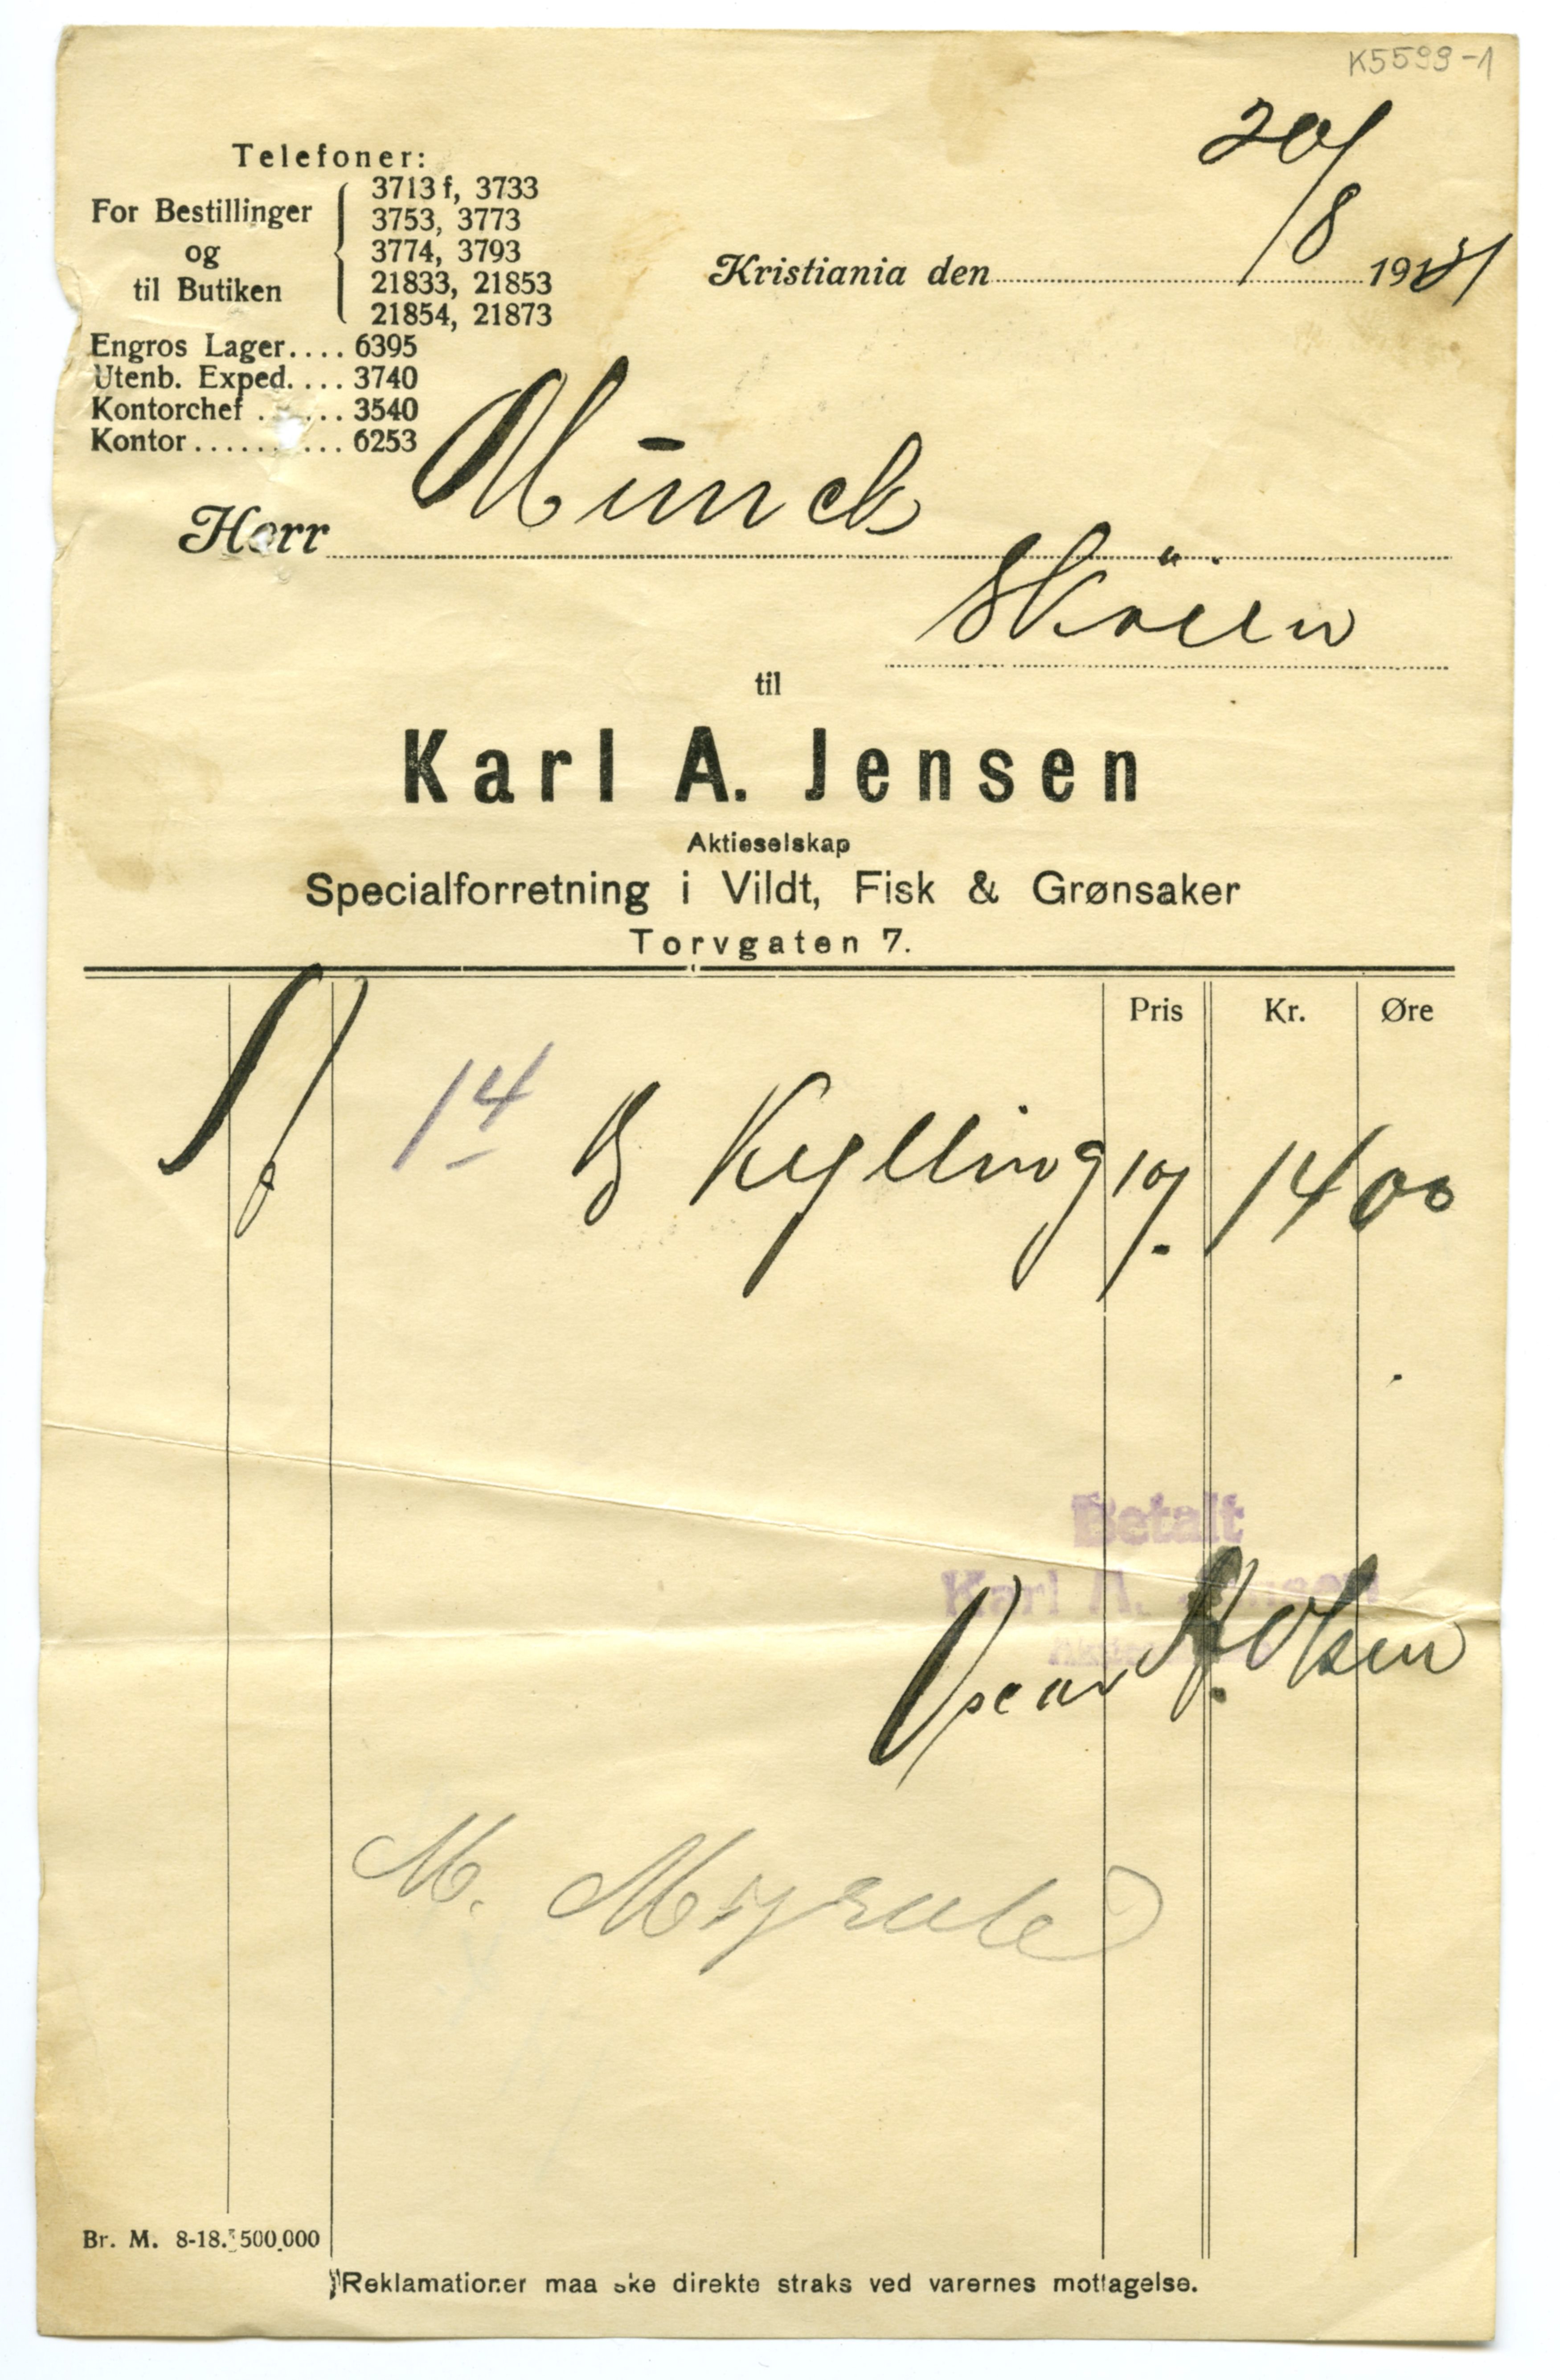 K5599-1
Telefoner:
For Bestillinger
og
til Butiken
3713 f, 3733
3753, 3773
3774, 3793
21833, 21853
21854, 21873
Engros Lager.... 6395
Utenb. Exped. ... 3740
Kontorchef ...... 3540
Kontor.......... 6253
20/8
Kristiania den 19
Herr Munck
Skøien
til
Karl A. Jensen
Aktieselskap
Specialforretning i Vildt, Fisk & Grønsaker
Torvgaten 7.
Pris Kr. Øre
14 Kylling 10/ 14 00
Betalt
Karl A. Jensen
Oscar A. Olsen
M.
Br. M. 8-18. 500.000
Reklamationer maa ske direkte straks ved varernes mottagelse.